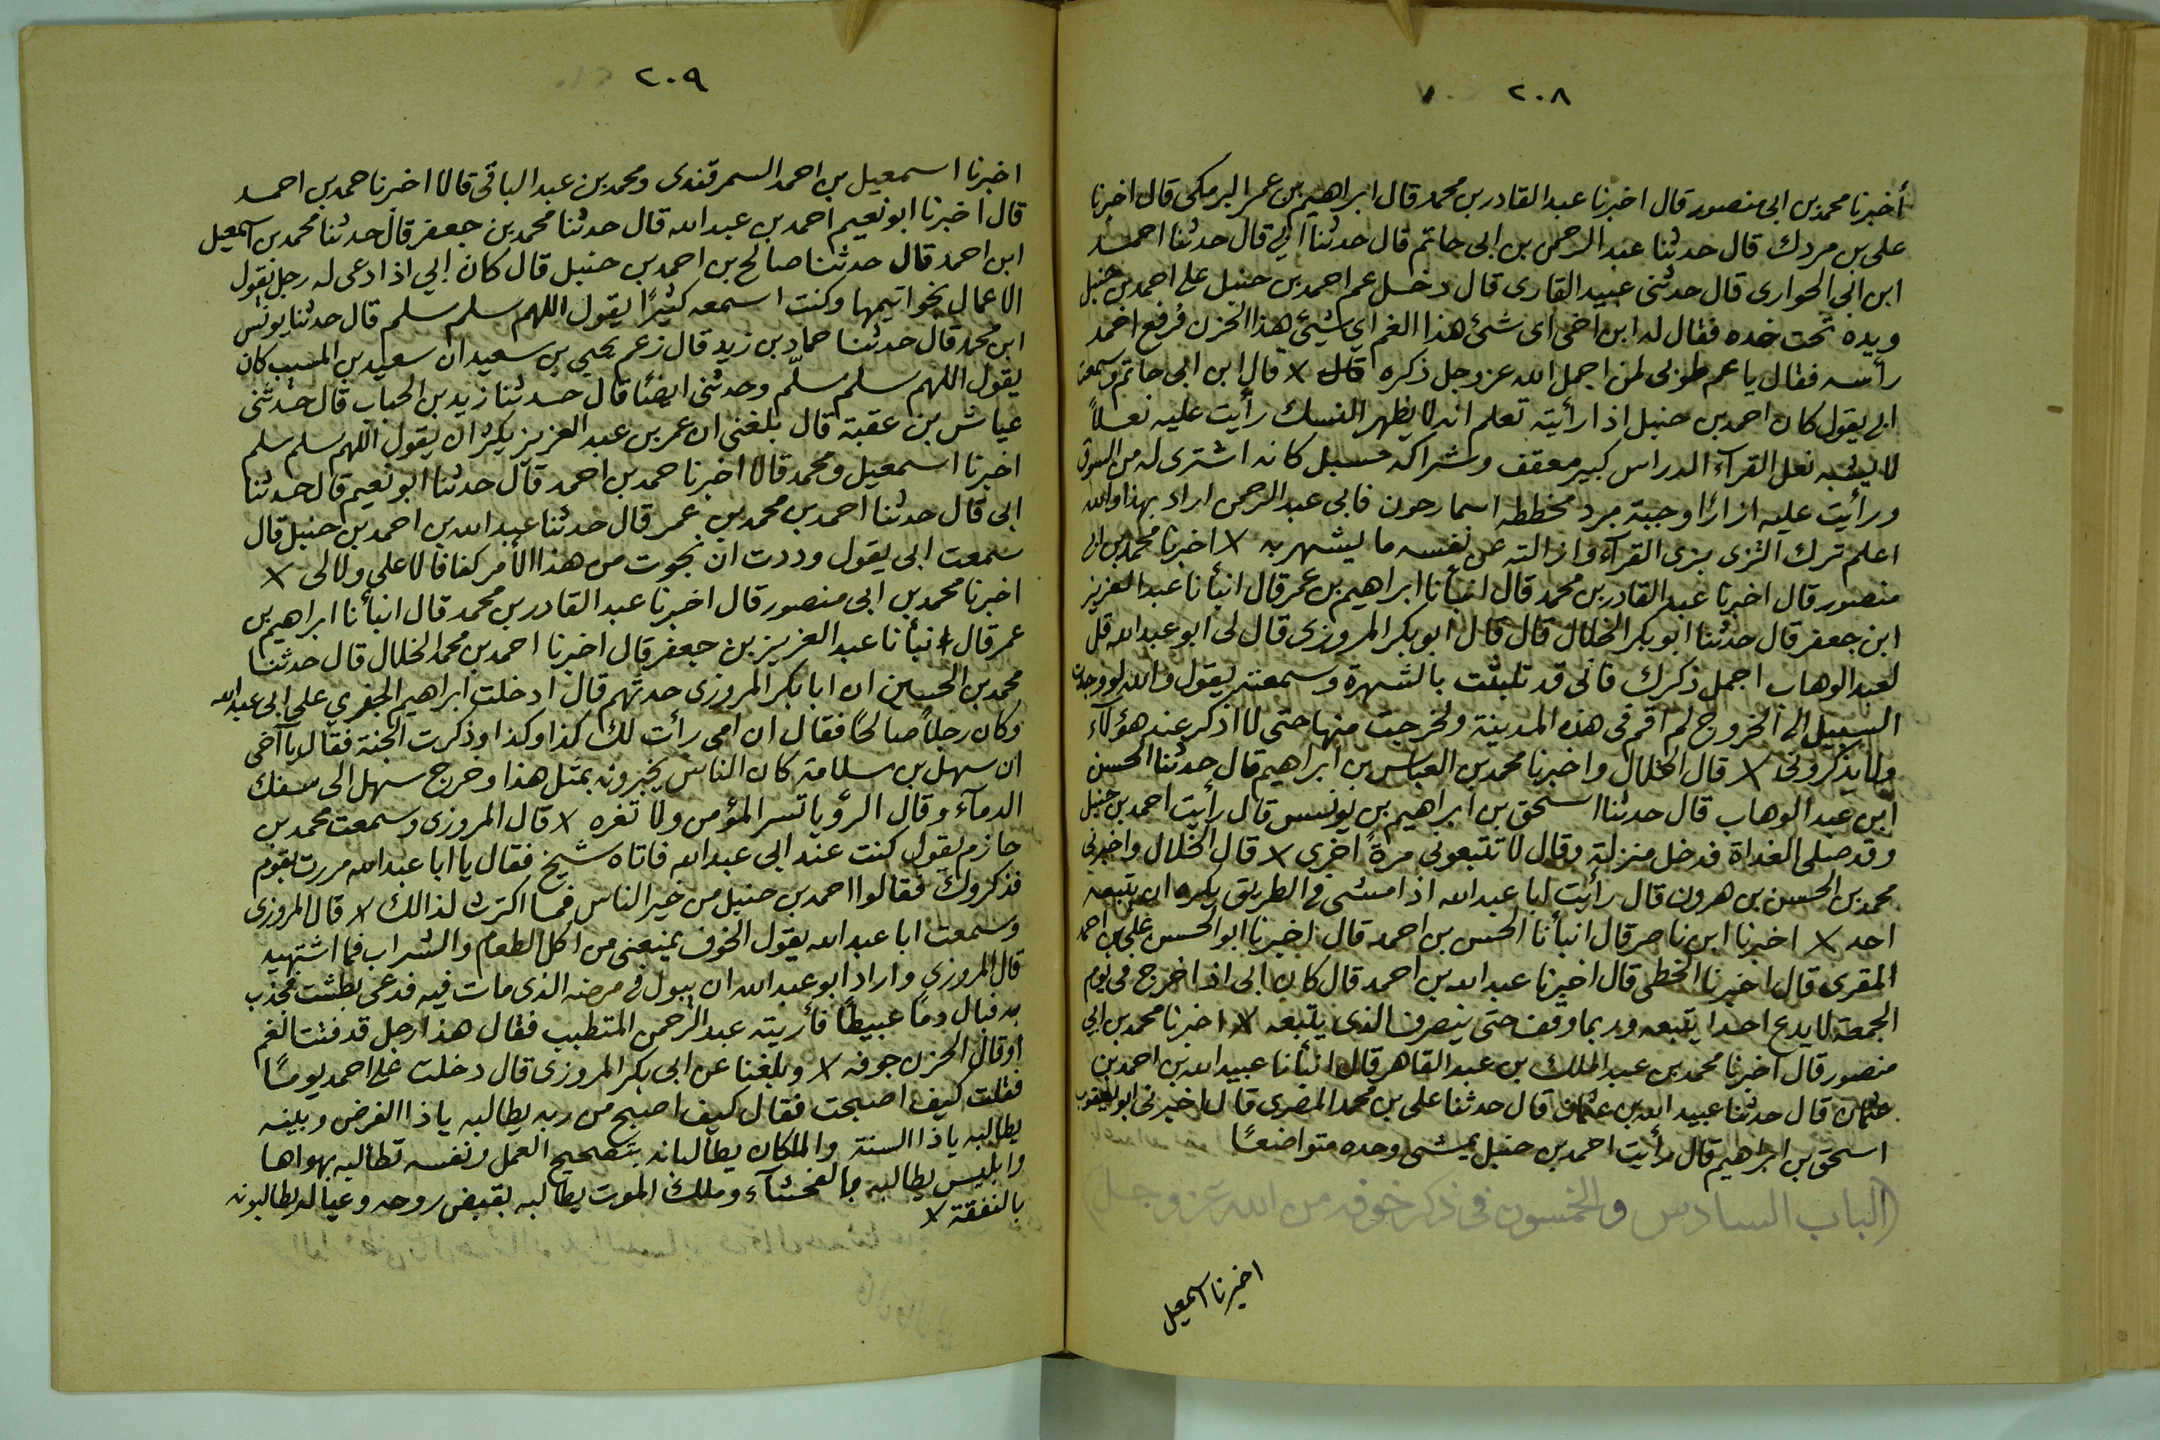 ٢٠٨
أخبرنا محمد بن ابى منصور قال اخبرنا عبد القادر بن محمد قال ابراهيم بن عمر البرمكى قال اخبرنا
على بن مردك قال حدثنا عبد الرحمن بن ابى حاتم قال حدثنا ابي قال حدثنا احمد
ابن ابي الحوارى قال حدثنى عبيد القارى قال دخل عم احمد بن حنبل على احمد بن حنبل
ويده تحت خده فقال له ابن اخى اى شئ هذا الغم اي شيئ هذا الحزن فرفع احمد
رأسه فقال يا عم طوبى لمن اخمل الله عز وجل ذكره قال × قال ابن ابى حاتم وسمعت
ابى يقول كان احمد بن حنبل اذا رأيته تعلم انه لا يظهر النسك رأيت عليه نعلاً
لا يشبه نعل القرآء له راس كبير معقف وشراكه مسبل كانه اشترى له من السوق
ورأيت عليه ازارًا وجبة برد مخططه اسمارجون قال ابى عبد الرحمن اراد بهذا والله
اعلم ترك التزى بزى القرآء وازالته عن نفسه ما يشهر به × اخبرنا محمد بن ابى
منصور قال اخبرنا عبد القادر بن محمد قال انبأنا ابراهيم بن عمر قال انبأنا عبد العزيز
ابن جعفر قال حدثنا ابو بكر الخلال قال قال ابو بكر المروزى قال لى ابو عبد الله قل
لعبد الوهاب اجمل ذكرك فانى قد تلبثت بالشهرة وسمعته يقول والله لو وجدت
السبيل الى الخروج لم اقم فى هذه المدينة ولخرجت منها حتى لا اذكر عند هؤلآء
ولا يذكرونى × قال الخلال واخبرنا محمد بن العباس بن ابراهيم قال حدثنا الحسن
ابن عبد الوهاب قال حدثنا اسحق بن ابراهيم بن يونس قال رأيت احمد بن حنبل
وقد صلى الغداة فدخل منزله وقال لا تتبعونى مرةً اخرى × قال الخلال واخبرنى
محمد بن الحسن بن هرون قال رأيت ابا عبد الله اذا مشى فى الطريق يكره ان يتبعه
احد × اخبرنا ابن ناصر قال انبأنا الحسن بن احمد قال اخبرنا ابو الحسن على بن احمد
المقرى قال اخبرنا الخطى قال اخبرنا عبد الله بن احمد قال كان ابى اذا خرج فى يوم
الجمعة لا يدع احدا يتبعه وربما وقف حتى ينصرف الذى يتبعه × اخبرنا محمد بن ابي
منصور قال اخبرنا محمد بن عبد الملك بن عبد القاهر قال انبأنا عبيد الله بن احمد بن
عثمان قال حدثنا عبيد الله بن عثمان قال حدثنا على بن محمد المصرى قال اخبرنى ابو يعقوب
اسحق بن ابراهيم قال رأيت احمد بن حنبل يمشى وحده متواضعًا
(الباب السادس والخمسون فى ذكر خوفه من الله عز وجل)
اخبرنا اسمعيل
٢٠٩
اخبرنا اسمعيل بن احمد السمرقندى ومحمد بن عبد الباقى قالا اخبرنا حمد بن احمد
قال اخبرنا ابو نعيم احمد بن عبد الله قال حدثنا محمد بن جعفر قال حدثنا محمد بن اسمعيل
ابن احمد قال حدثنا صالح بن احمد بن حنبل قال كان ابي اذا دعى له رجل يقول
الاعمال بخواتيمها وكنت اسمعه كثيرًا يقول اللهم سلم سلم قال حدثنا يونس
ابن محمد قال حدثنا حماد بن زيد قال زعم يحيى بن سعيد ان سعيد بن المسيب كان
يقول اللهم سلم سلّم وحدثنى ايضًا قال حدثنا زيد بن الحباب قال حدثنى
عياش بن عقبة قال بلغنى ان عمر بن عبد العزيز يكثر ان يقول اللهم سلم سلم
اخبرنا اسمعيل ومحمد قالا اخبرنا حمد بن احمد قال حدثنا ابو نعيم قال حدثنا
ابى قال حدثنا احمد بن محمد بن عمر قال حدثنا عبد الله بن احمد بن حنبل قال
سمعت ابى يقول وددت ان نجوت من هذا الأمر كفافا لا على ولا لى ×
اخبرنا محمد بن ابى منصور قال اخبرنا عبد القادر بن محمد قال انبأنا ابراهيم بن
عمر قال انبأنا عبد العزيز بن جعفر قال اخبرنا احمد بن محمد الخلال قال حدثنا
محمد بن الحسين ان ابا بكر المروزى حدثهم قال ادخلت ابراهيم الحصرى على ابى عبد الله
وكان رجلًا صالحًا فقال ان امى رأت لك كذا وكذا وذكرت الجنة فقال يا اخى
ان سهل بن سلامة كان الناس يخبرونه بمثل هذا وخرج سهل الى سفك
الدمآء وقال الرؤيا تسر المؤمن ولا تغره × قال المروزى وسمعت محمد بن
حازم يقول كنت عند ابى عبد الله فاتاه شيخ فقال يا ابا عبد الله مررت بقوم
فذكروك فقالوا احمد بن حنبل من خير الناس فما اكترث لذالك × قال المروزى
وسمعت ابا عبد الله يقول الخوف يمنعنى من اكل الطعام والشراب فما اشتهيه
قال المروزى واراد ابو عبد الله ان يبول فى مرضه الذى مات فيه فدعى بطشت فجذب
به فبال دمًا عبيطًا فأريته عبد الرحمن المتطبب فقال هذا رجل قد فتت الغم
اوقال الحزن جوفه × وبلغنا عن ابى بكر المروزى قال دخلت على احمد يومًا
فقلت كيف اصبحت فقال كيف اصبح من ربه يطالبه ياذا الفرض ونبيه
يطالبه ياذا السنة والملكان يطالبانه بتصحيح العمل ونفسه تطالبه بهواها
وابليس يطالبه بالفحشآء وملك الموت يطالبه بقبض روحه وعياله يطالبونه
بالنفقة ×